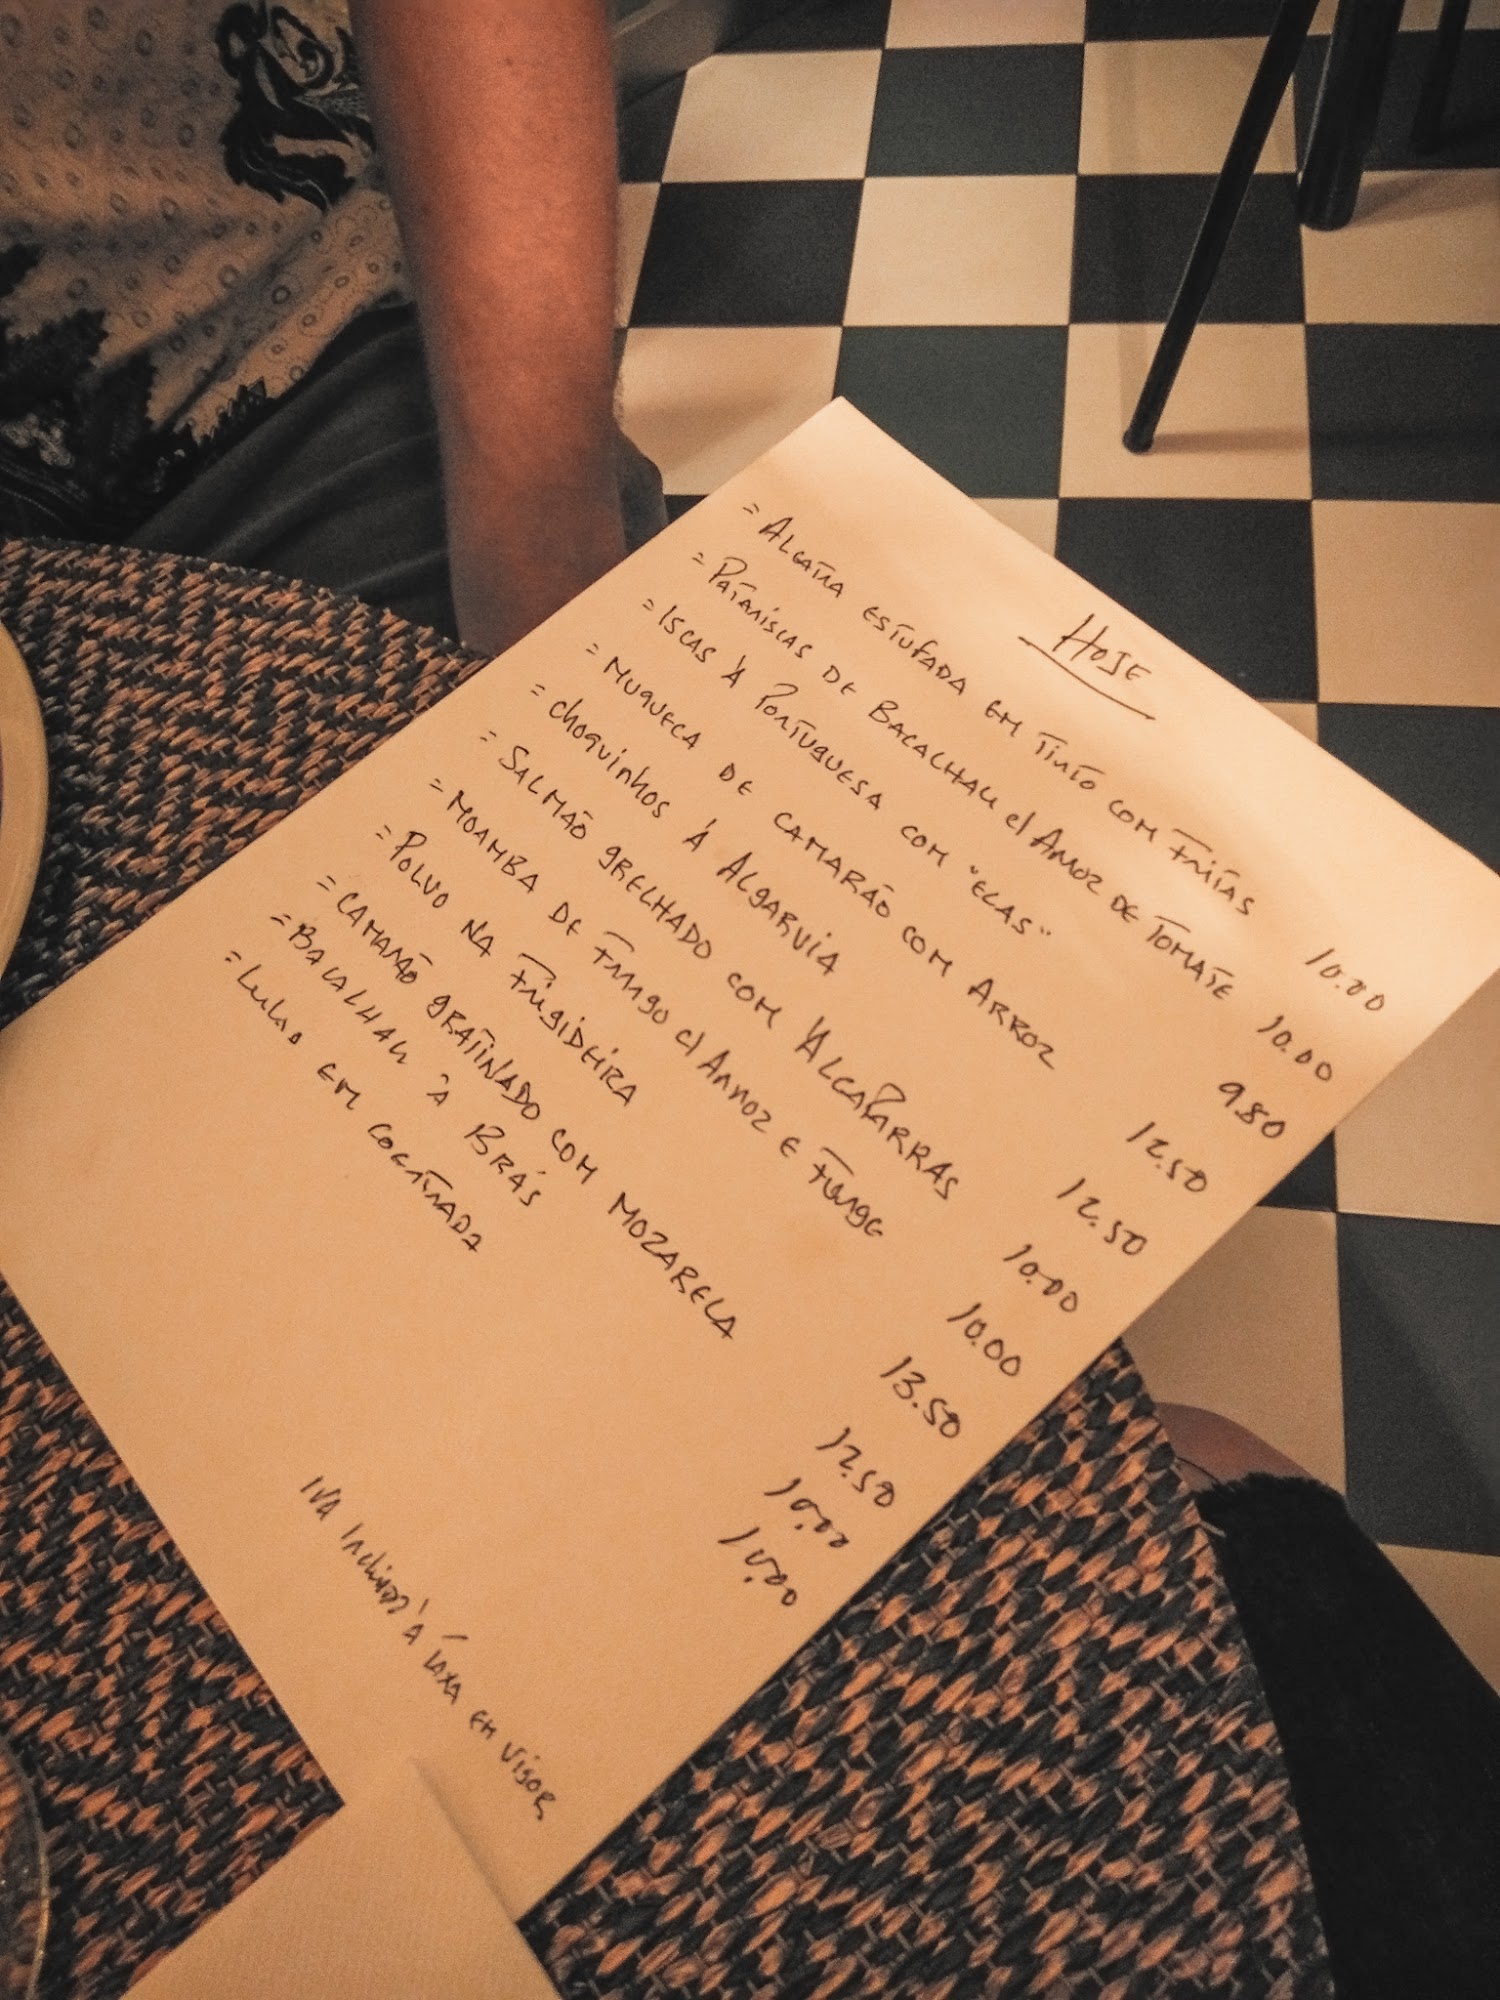 HOJE
= ALCATRA ESTUFADA EM TINTO COM FRITAS 10.00
= PATANISCAS DE BACALHAU c/ ARROZ DE TOMATE 10.00
= ISCAS À PORTUGUESA COM "ELAS" 9.80
= MUQUECA DE CAMARÃO COM ARROZ 12.50
= choquinhos À ALGARVIA 12.50
= SALMÃO GRELHADO COM ALCAPARRAS 10.00
= MOAMBA DE FRANGO c/ ARROZ E FUNGE 10.00
= POLVO NA FRIGIDEIRA 13.50
= CAMARÃO GRATINADO COM MOZARELA 12.50
= BACALHAU À BRÁS 10.00
= LULAS EM COENTRADA 10.00
IVA Incluido à taxa EM VIGOR